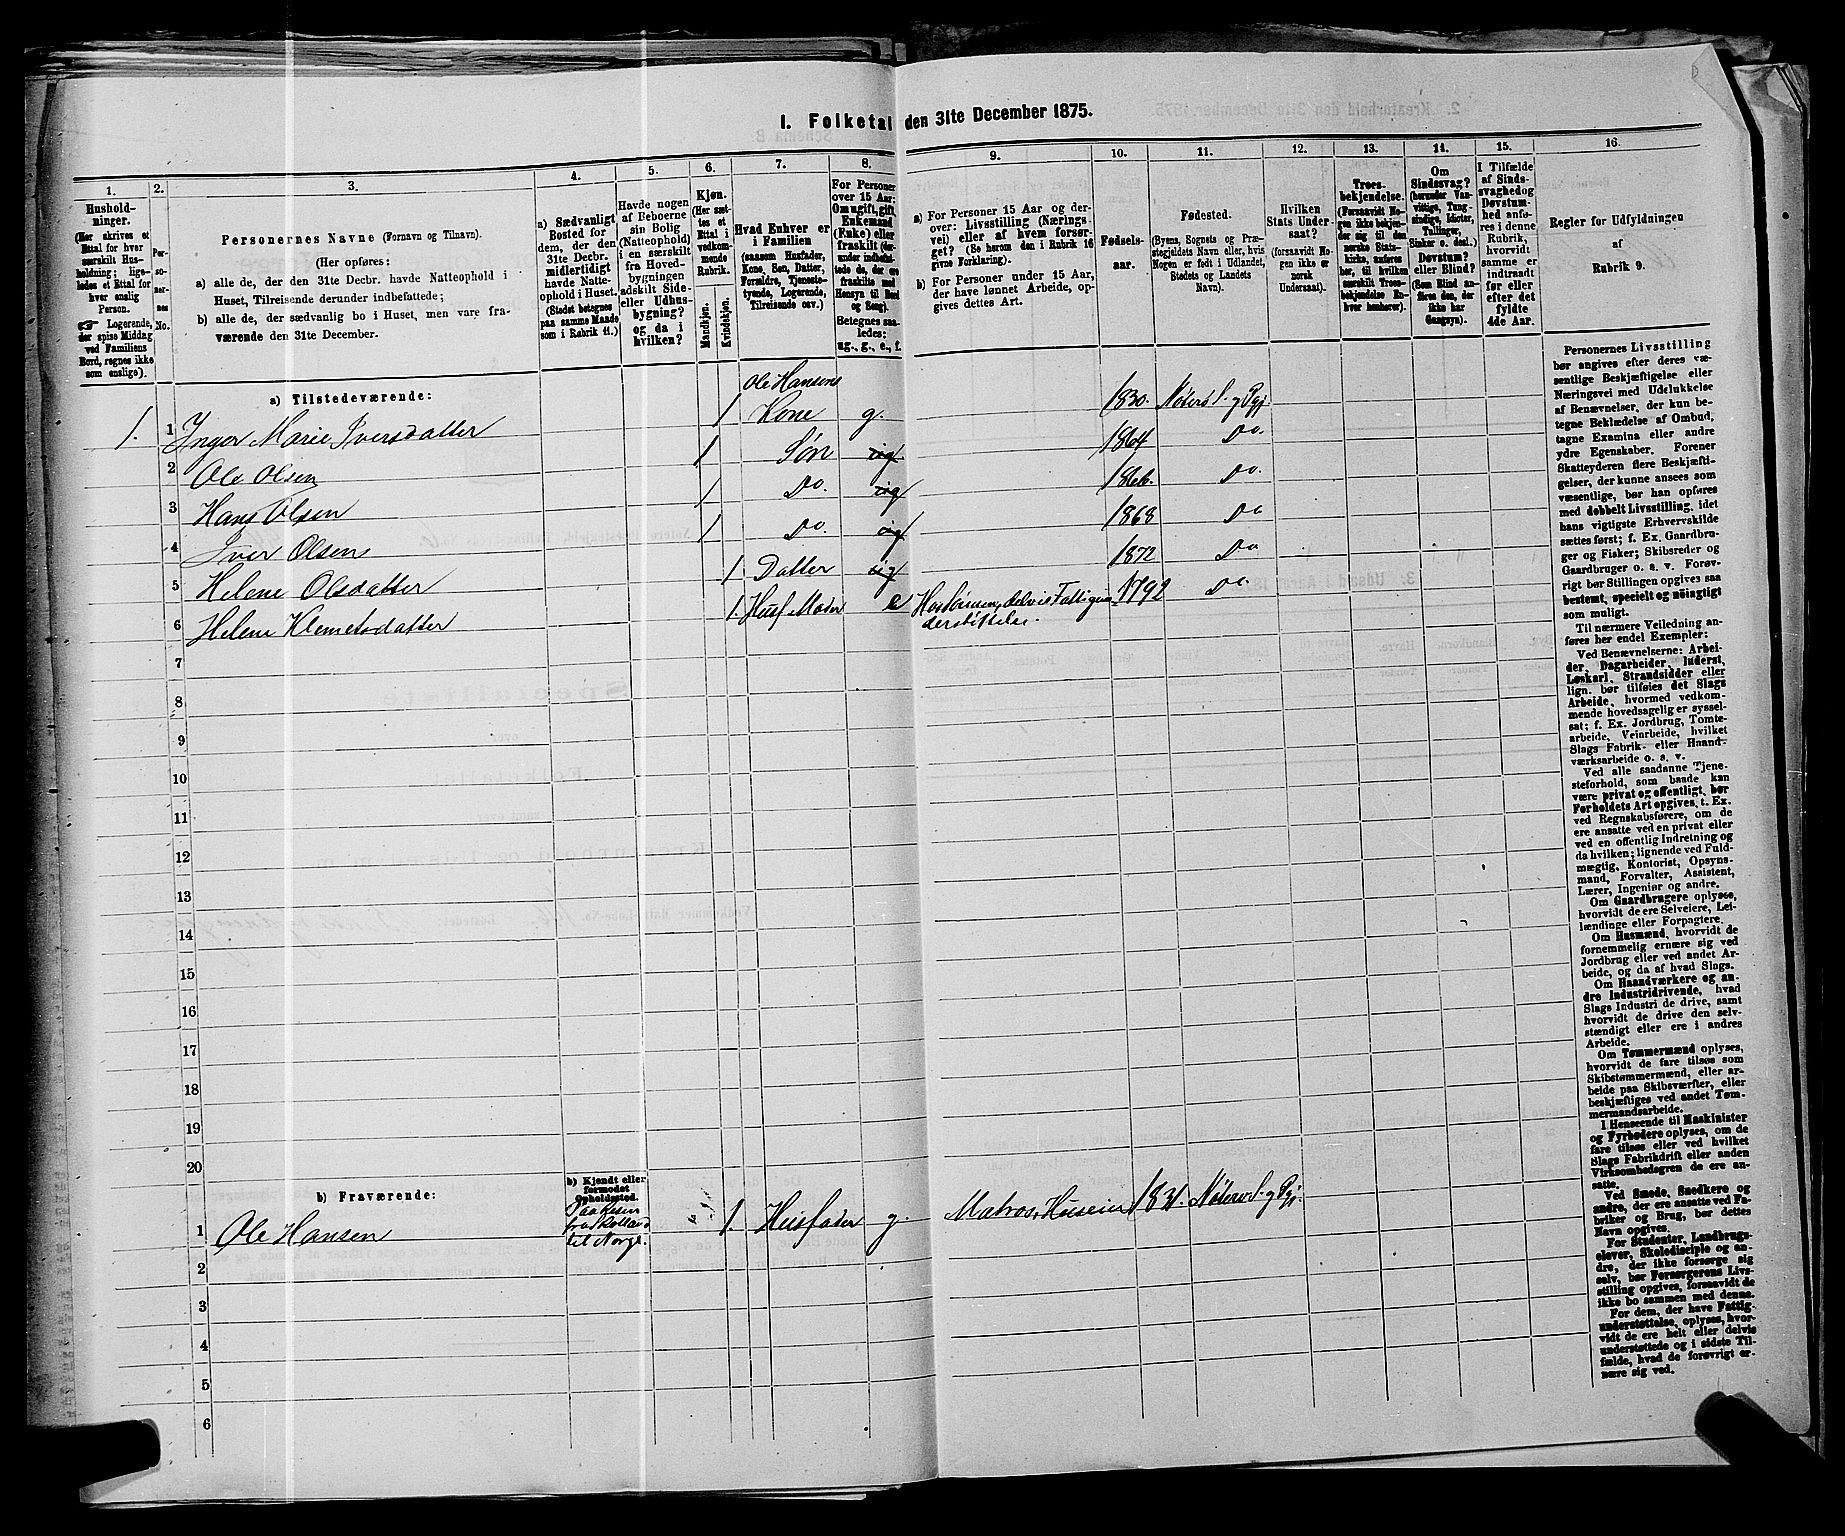 I. Folketal den 31te December 1875.
1.
2.
3.
4.
5.
6.
7.
8.
9.
10.
11.
12.
13.
14.
15.
16.
Hushold-
ninger.
(Her skrives et
Ettal for hver
særskilt Hus-
holdning; lige-
ledes et Ettal for
hver enslig
Person.
Logerende,
der spise Middag
ved Familiens
Bord, regnes ikke
som enslige).
Per-
so-
ner-
nes
No.
Personernes Navne (Fornavn og Tilnavn).
(Her opføres:
a) alle de, der den 31te Decbr. havde Natteophold i
Huset, Tilreisende derunder indbefattede;
b) alle de, der sædvanlig bo i Huset, men vare fra-
værende den 31te December.
a) Sædvanligt
Bosted for
dem, der den
31te Decbr.
midlertidigt
havde Natte-
ophold i Huset.
(Stedet betegnes
paa samme Maade
som i Rubrik 11.)
Havde nogen
af Beboerne
sin Bolig
(Natteophold)
i en særskilt
fra Hoved-
bygningen
adskilt Side-
eller Udhus-
bygning?
og da i
hvilken?
Kjøn.
(Her sæt-
tes et
Ettal i
vedkom-
mende
Rubrik.
Mandkjøn.
Kvindekjøn.
Hvad Enhver er
i Familien
(saasom Husfader,
Kone, Søn, Datter,
Forældre, Tjeneste-
tyende, Logerende,
Tilreisende osv.)
For Personer
over 15 Aar:
Om ugift, gift,
Enkemand
(Enke) eller
fraskilt (der-
under indbefat-
tede de, der ere
fraskilte med
Hensyn til Bord
og Seng).
Betegnes saa-
ledes:
ug., g., e., f.
a) For Personer 15 Aar og der-
over: Livsstilling (Nærings-
vei) eller af hvem forsør-
get? (Se herom den i Rubrik 16
givne Forklaring).
b) For Personer under 15 Aar,
der have lønnet Arbeide, op-
gives dettes Art.
Fødsels-
aar.
Fødested.
(Byens, Sognets og Præ-
stegjeldets Navn eller, hvis
Nogen er født i Udlandet,
Stedets og Landets
Navn).
Hvilken
Stats Under-
saat?
(forsaavidt No-
gen ikke er
norsk
Undersaat).
Troes-
bekjendelse.
(Forsaavidt No-
gen ikke bekjen-
der sig til den
norske Stats-
kirke, anføres
her, til hvilken
særskilt Troes-
bekjendelse En-
hver henhører).
Om
Sindssvag?
(herunder Van-
vittige, Tung-
sindige, Idioter,
Tullinger,
Sinker o. desl.)
Døvstum?
eller Blind?
(Som Blind an-
føres den, der
ikke har
Gangsyn).
I Tilfælde
af Sinds-
svaghed og
Døvstum-
hed anfø-
res i denne
Rubrik,
hvorvidt
samme er
indtraadt
før eller
efter det
fyldte
4de Aar.
Regler for Udfyldningen
af
Rubrik 9.
a) Tilstedeværende:
Ole Hansens
1. 1 Inger Marie Iversdatter 1 Kone g. 1830. Nøterø S. og Pgj.
2 Ole Olsen 1 Søn ug 1864 Do.
3 Hans Olsen 1 Do. ug 1866. Do.
4 Iver Olsen 1 Do. ug 1868 Do
5 Helene Olsdatter 1 Datter ug 1872 Do
6 Helene Klemetsdatter 1 Husf Moder e Hos Sønnen, delvis Fattigun- 1792 Do
derstøttelse.
7
8
9
10
11
12
13
14
15
16
17
18
19
20
b) Fraværende:
b) Kjendt eller
formodet
Opholdssted.
Paa Reisen
fra Holland
til Norge.
1 Ole Hansen 1 Husfader g. Matros, Huseier 1831. Nøterø S. og Pgj.
2
3
4
5
6
Personernes Livsstilling
bør angives efter deres væ-
sentlige Beskjæftigelse eller
Næringsvei med Udelukkelse
af Benævnelser, der kun be-
tegne Beklædelse af Ombud,
tagne Examina eller andre
ydre Egenskaber. Forener
Skatteyderen flere Beskjæfti-
gelser, der kunne ansees som
væsentlige, bør han opføres
med dobbelt Livsstilling, idet
hans vigtigste Erhvervskilde
sættes først; f. Ex. Gaardbru-
ger og Fisker; Skibsreder og
Gaardbruger o. s. v. Forøv-
rigt bør Stillingen opgives saa
bestemt, specielt og nøiagtigt
som muligt.
Til nærmere Veiledning an-
føres her endel Exempler:
Ved Benævnelserne: Arbei-
der, Dagarbeider, Inderst,
Løskarl, Strandsidder eller
lign. bør tilføies det Slags
Arbeide, hvormed vedkom-
mende hovedsagelig er syssel-
sat; f. Ex. Jordbrug, Tomte-
arbeide, Veiarbeide, hvilket
Slags Fabrik- eller Haand-
værksarbeide o. s. v.
Ved alle saadanne Tjene-
steforhold, som baade kan
være privat og offentligt, bør
Forholdets Art opgives, t. Ex.
ved Regnskabsførere, om de
ere ansatte ved en privat eller
ved en offentlig Indretning og
da hvilken; lignende ved Fuld-
mægtig, Kontorist, Opsyns-
mand, Forvalter, Assistent,
Lærer, Ingeniør og andre.
Om Gaardbrugere oplyses,
hvorvidt de ere Selveiere, Lei-
lændinge eller Forpagtere.
Om Husmænd, hvorvidt de
fornemmelig ernære sig ved
Jordbrug eller ved andet Ar-
beide, og da af hvad Slags.
Om Haandværkere og an-
dre Industridrivende, hvad
Slags Industri de drive, samt
hvorvidt de drive den selv-
stændigt eller ere i andres
Arbeide.
Om Tømmermænd oplyses,
hvorvidt de fare tilsøs som
Skibstømmermænd, eller ar-
beide paa Skibsværfter, eller
beskjæftiges ved andet Tøm-
mermandsarbeide.
I Henseende til Maskinister
og Fyrbødere oplyses, om de
fare tilsøs eller ved hvilket
Slags Fabrikdrift eller anden
Virksomhedsgren de ere an-
satte.
Ved Smede, Snedkere og
andre, der ere ansatte ved Fa-
briker og Brug, bør dettes
Navn opgives.
For Studenter, Landbrugs-
elever, Skoledisciple og an-
dre, der ikke forsørge sig
selv, bør Forsørgerens Livs-
stilling opgives, forsaavidt de
ikke bo sammen med denne.
For dem, der have Fattig-
understøttelse, oplyses, hvor-
vidt de ere helt eller delvis
understøttede og i sidste Til-
fælde, hvad de forøvrigt er-
nære sig ved.